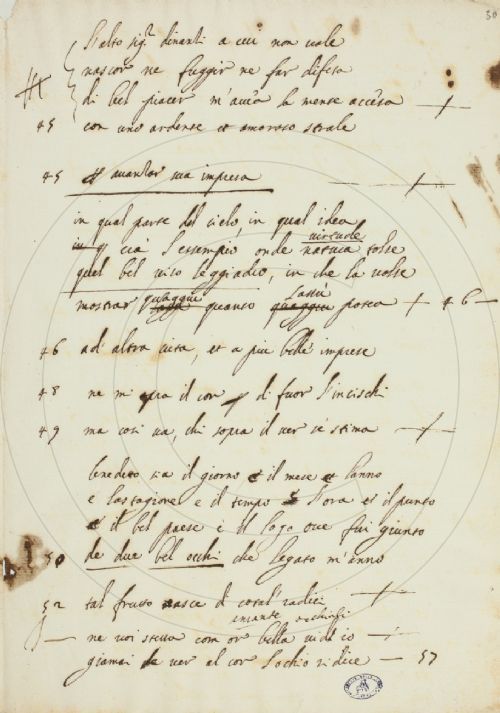 50
L'alto sigr dinanti a cui non vale
nasconder ne fuggir ne far difesa
di bel piacer m'avea la mente accesa
45 con uno ardente et amoroso strale
45 et avantar sua impresa
in qual parte del cielo, in qual idea
era l'essempio onde natura tolse
virtude
quel bel viso leggiadro, in che la volse
mostrar quaggiù quanto lassù potea 46
46 ad altra vita, et a piu belle imprese
48 ne mi il cor di fuor l'incischi
49 ma cosi va, chi sopra il ver se stima
benedeto sia il giorno e il mese e l'anno
e la stagione e il tempo e l'ora et il punto
e il bel paese e il logo ove fui giunto
50 de due bel occhi che legato m'anno
52 tal frutto nasce di cotal radici
amante occhi
ne voi stessa com or bella vidd io
giamai de ver al cor l'ochio ridice 57